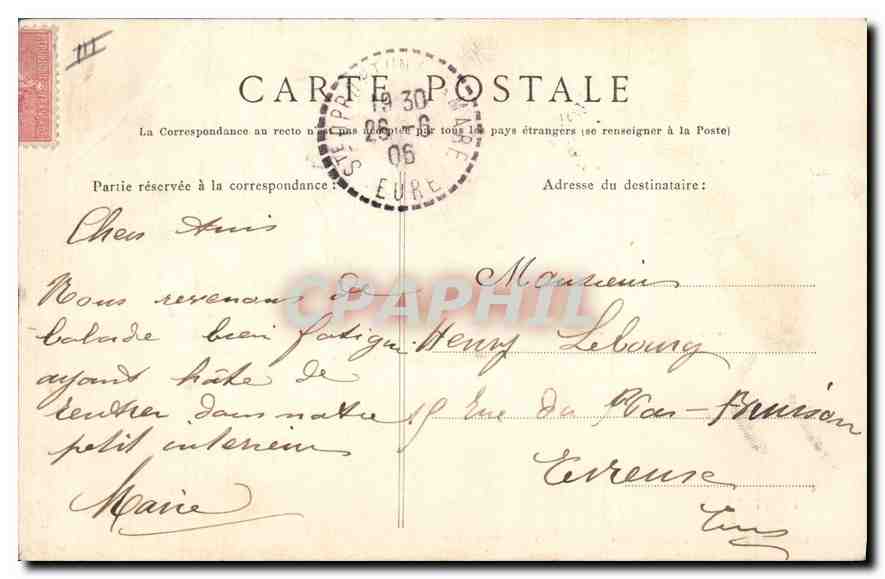 III
CARTE POSTALE
19 30
26 -6
06
EURE
La Correspondance au recto n'est pas acceptée par tous les pays étrangers (se renseigner à la Poste)
Partie réservée à la correspondance :
Adresse du destinataire :
Chers Amis
Nous revenons de
balade bien fatigué
ayant hâte de
rentrer dans notre
petit interieur
Marie
Monsieur
Henry Lebourg
15 Rue du
Evreuse
CPAPHIL